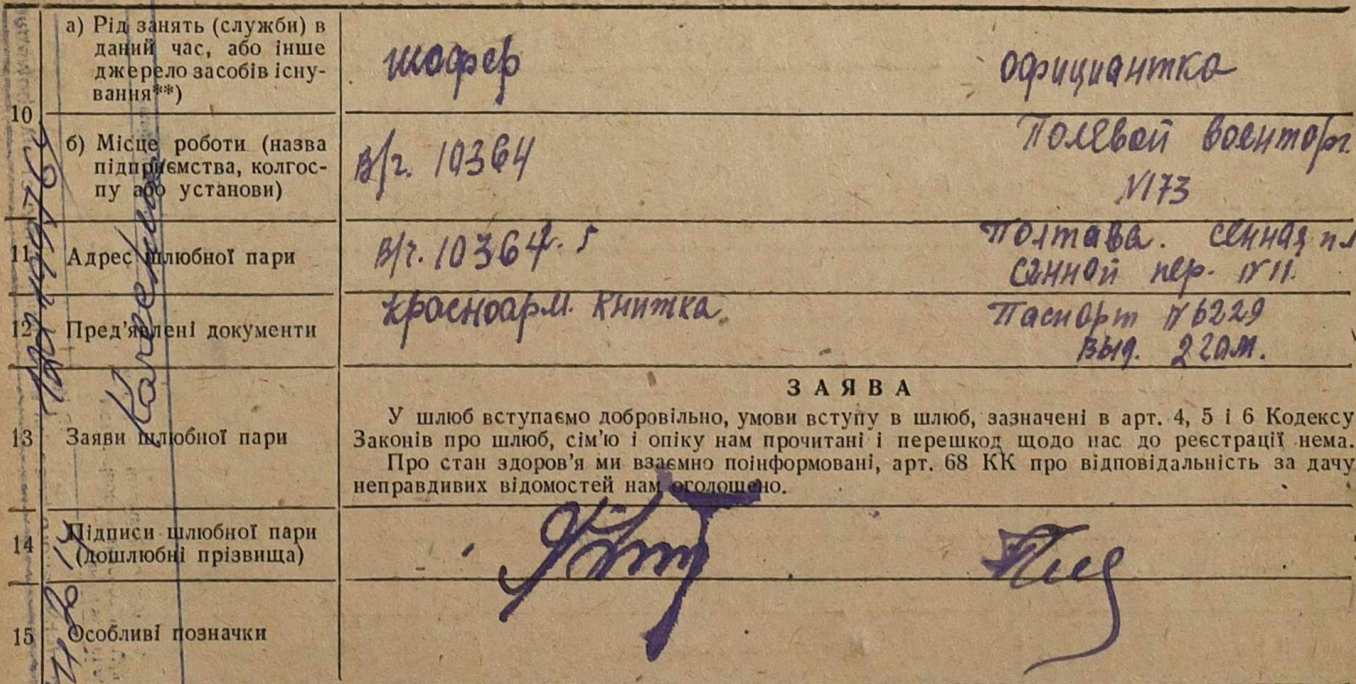 а) Рід занять (служби) в
даний час, або інше
джерело засобів існу-
вання**)
шофер
официантка
10
б) Місце роботи (назва
підприємства, колгос-
пу або установи)
в/ч. 10364
Полевой военторг.
№173
11
Адрес шлюбної пари
в/ч. 10364
Полтава. сенная пл
сенной пер. №11.
12
Пред'явлені документи
красноарм. книжка
Паспорт №6229
выд. 2 г.о.м.
13
Заяви шлюбної пари
ЗАЯВА
У шлюб вступаємо добровільно, умови вступу в шлюб, зазначені в арт. 4, 5 і 6 Кодексу
Законів про шлюб, сім'ю і опіку нам прочитані і перешкод щодо нас до реєстрації нема.
Про стан здоров'я ми взаємно поінформовані, арт. 68 КК про відповідальність за дачу
неправдивих відомостей нам оголошено.
14
Підписи шлюбної пари
(дошлюбні прізвища)
15
Особливі позначки